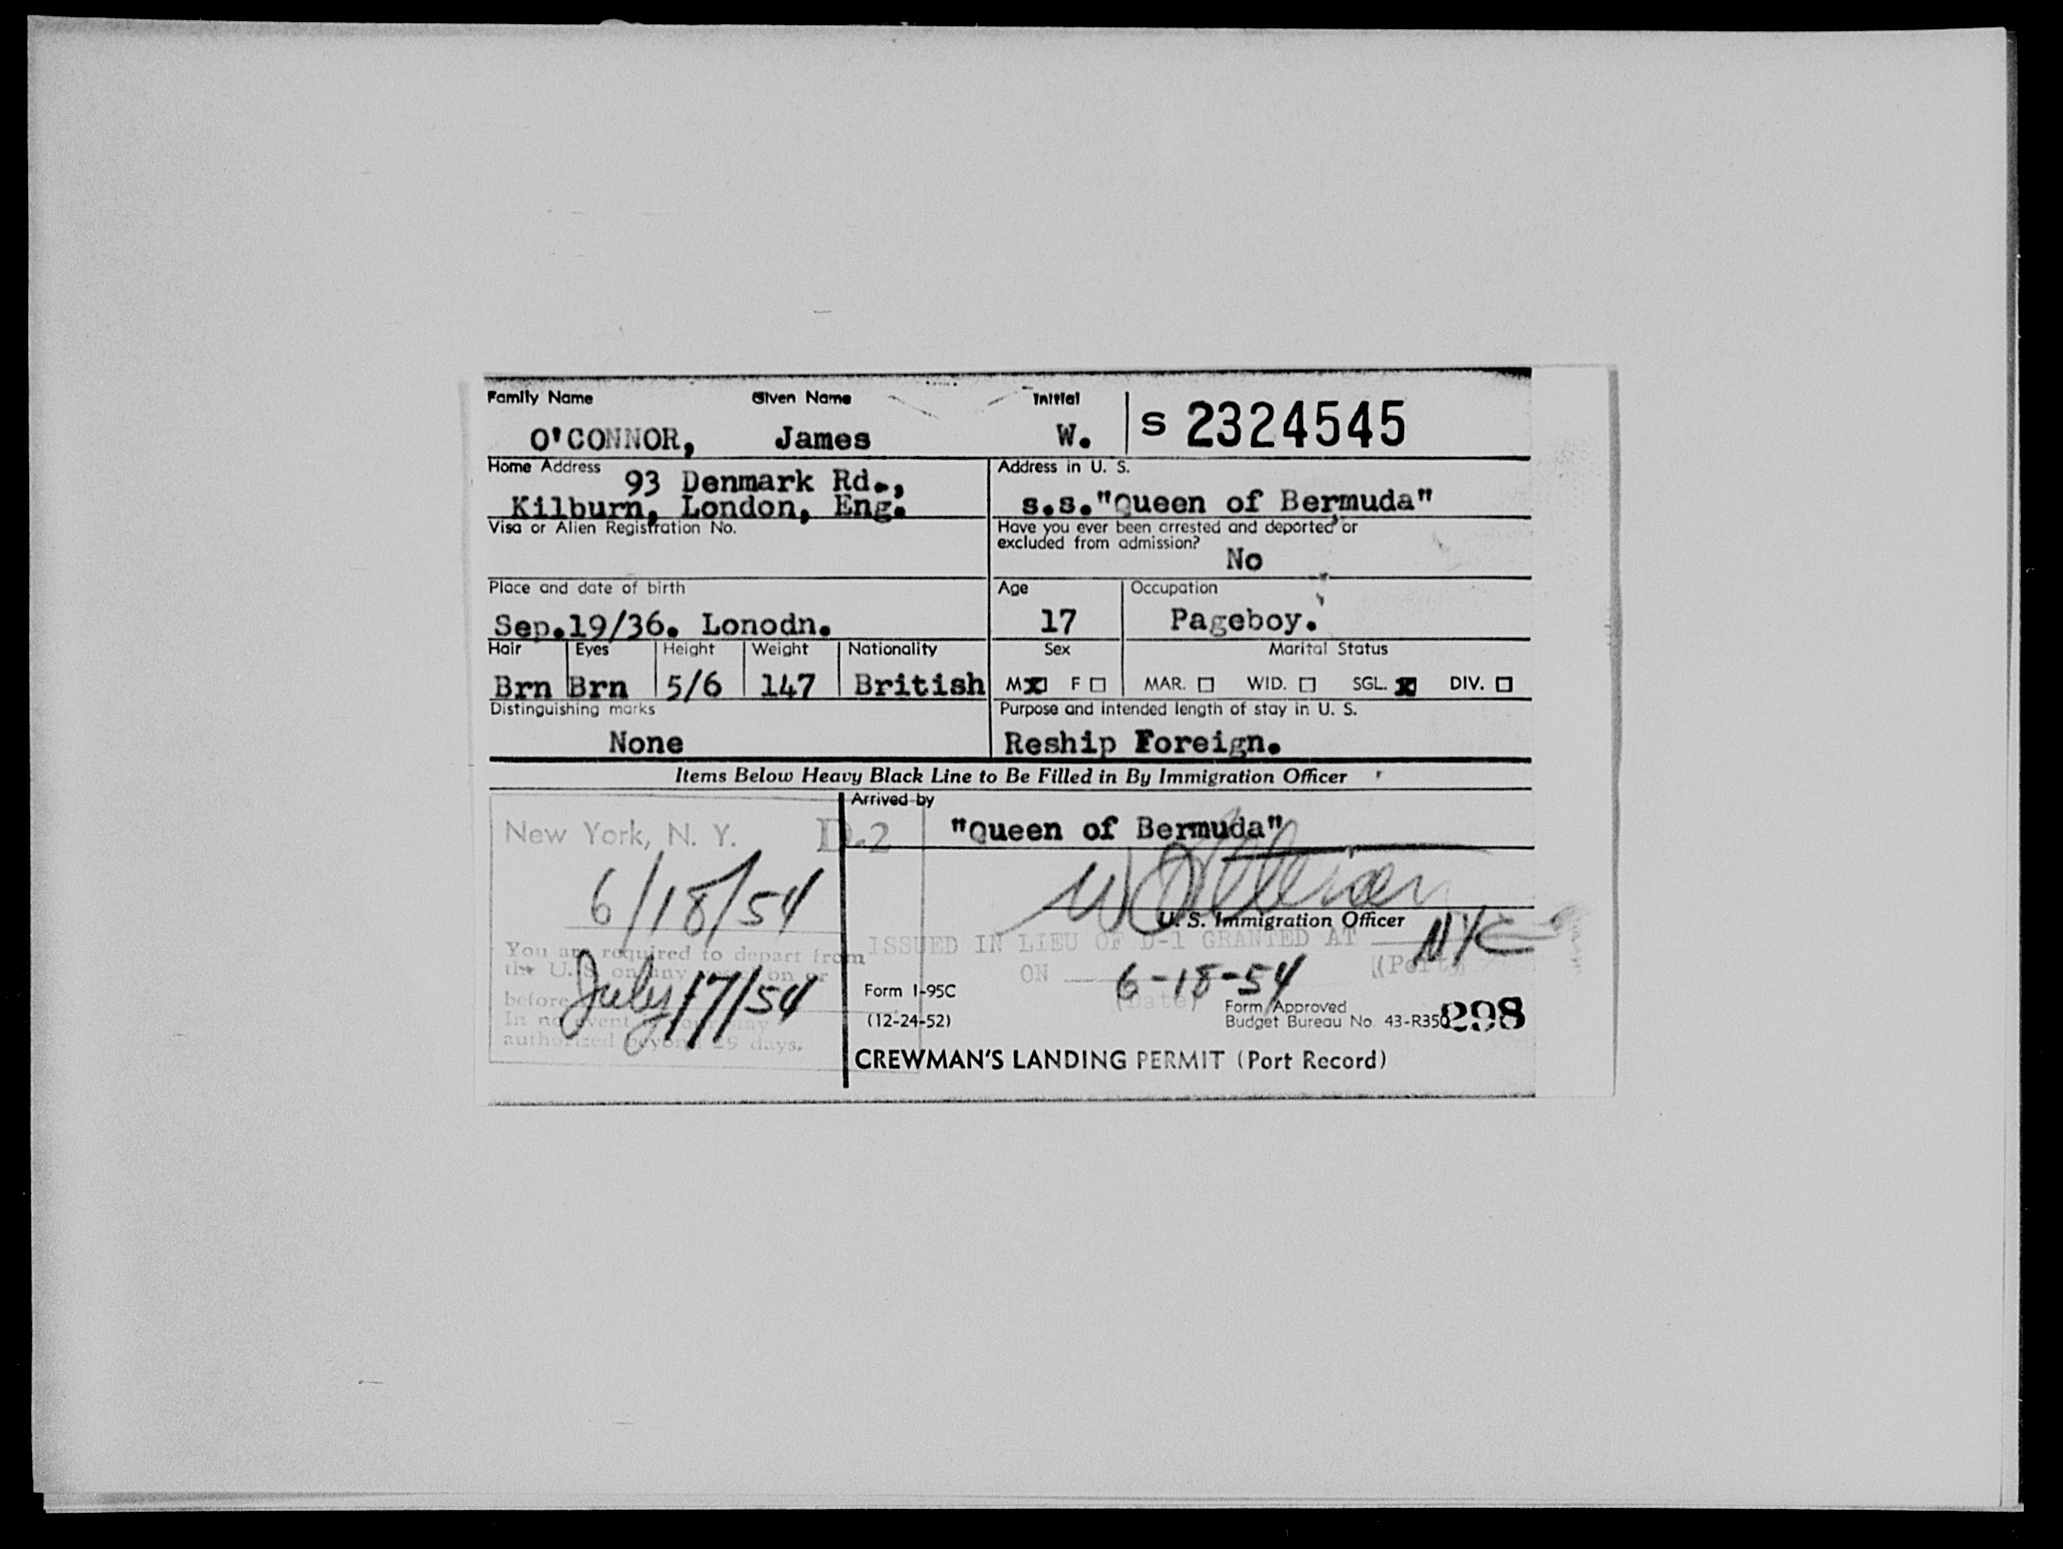 Family Name Given Name Initial
O'CONNOR, James W. S 2324545
Home Address Address in U. S.
93 Denmark Rd.,
Kilburn, London, Eng. s.s."Queen of Bermuda"
Visa or Alien Registration No. Have you ever been arrested and deported or
excluded from admission?
No
Place and date of birth Age Occupation
Sep.19/36. Lonodn. 17 Pageboy.
Hair Eyes Height Weight Nationality Sex Marital Status
Brn Brn 5/6 147 British M X F MAR. WID. SGL. X DIV.
Distinguishing marks Purpose and intended length of stay in U. S.
None Reship Foreign.
Items Below Heavy Black Line to Be Filled in By Immigration Officer
Arrived by
New York, N. Y. D-2 "Queen of Bermuda"
6/18/54
U. S. Immigration Officer
You are required to depart from
the U.S. on any on or
before July 17/54
In no event
authorized beyond 29 days.
ISSUED IN LIEU OF D-1 GRANTED AT NYC
(Port)
ON 6-18-54
(Date)
Form I-95C
(12-24-52)
Form Approved
Budget Bureau No. 43-R350
298
CREWMAN'S LANDING PERMIT (Port Record)